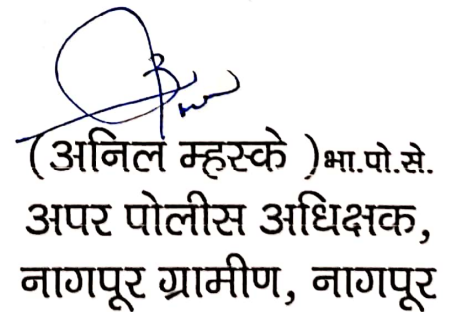 (अनिल म्हस्के )भा.पो.से.
अपर पोलीस अधिक्षक,
नागपूर ग्रामीण, नागपूर